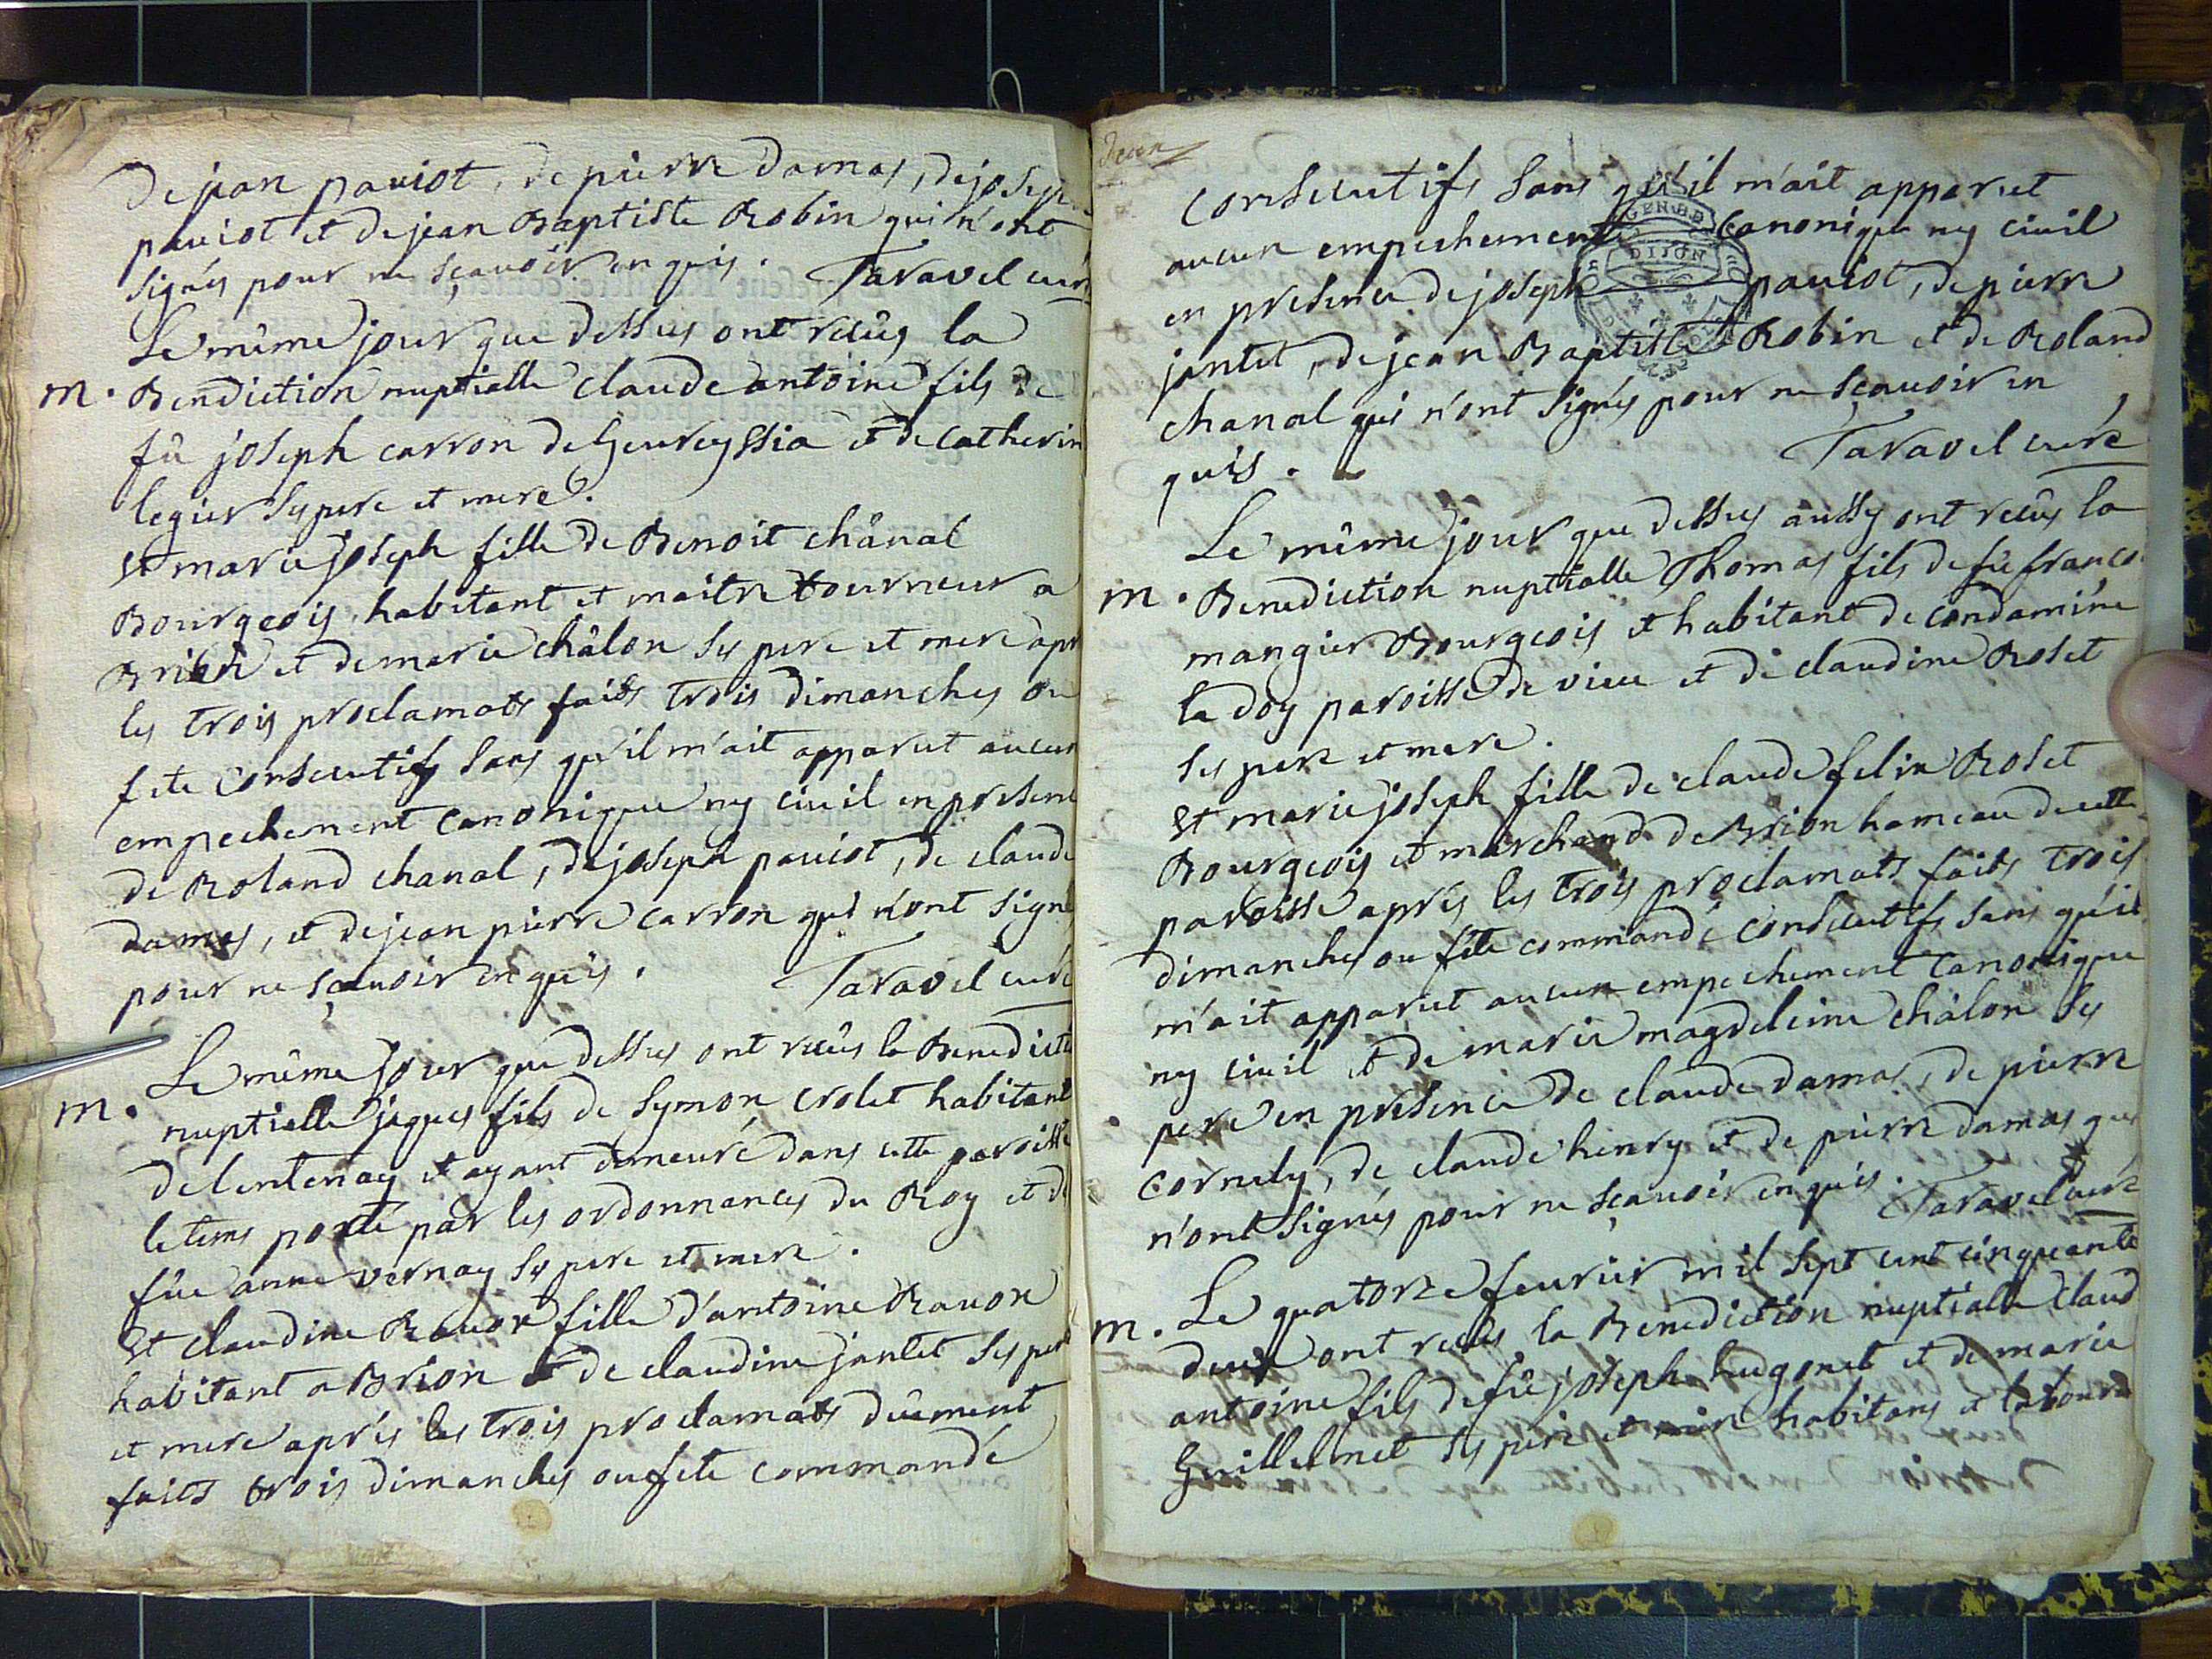 De jean pauiot, de pierre damas, de joseph
pauiot et de jean Baptiste Robin qui n'ont
signés pour ne sçauoir enquis. Taravel curé
Le même jour que dessus ont reçûs la
m. Benediction nuptialle claude antoine fils de
fû joseph carron de Geureyssia et de Catherin
legier ses pere et mere.
Et marie joseph fille de Benoit chânal
Bourgeois, habitant et maitre tourneur a
Brion et de marie châlon ses pere et mere apr
les trois proclamats faits trois dimanches ou
fete consecutifs sans qu'il m'ait apparut aucun
empechement canonique ny ciuil en presence
de Roland chanal, de joseph pauiot, de claude
damas, et de jean pierre carron qui n'ont signé
pour ne sçauoir enquis. Taravel curé
Le même jour que dessus ont reçûs la Benedicti
m. nuptialle jaques fils de Symon crolet habitant
de lentenay et ayant demeuré dans cette paroisse
le tems porté par les ordonnances du Roy et de
fûe anne vernay ses pere et mere.
Et claudine Rauor fille d'antoine Rauor
habitant a Brion et de claudine jantet ses pere
et mere aprés les trois proclamats duement
faits trois dimanches ou fete commandé
consecutifs sans qu'il m'ait apparut
aucun empechement canonique ny ciuil
GEN. DE
DIJON
en presence de joseph pauiot, de pierre
jantet, de jean Baptiste Robin et de Roland
chanal qui n'ont signés pour ne sçauoir en
quis. Taravel curé
Le même jour que dessus aussy ont reçûs la
m. Benediction nuptialle Thomas fils de fû franco
mangier Bourgeois et habitant de condamine
la doy paroisse de vieu et de claudine Roset
ses pere et mere.
Et marie joseph fille de claude felin Roset
Bourgeois et marchand de Brion hameau de cette
paroisse aprés les trois proclamats faits trois
dimanches ou fête commandé consecutifs sans qu'il
m'ait apparut aucun empechement canonique
ny ciuil et de marie magdeleine châlon ses
pere en presence de claude damas, de pierre
cornely, de claude henry et de pierre damas qui
n'ont signés pour ne sçauoir enquis. Taravel curé
Le quatorze feurier mil sept cent cinquante
m. deux ont reçûs la Benediction nuptialle claud
antoine fils de fû joseph hugonet et de marie
Guillelmet ses pere et mere habitans et laboure